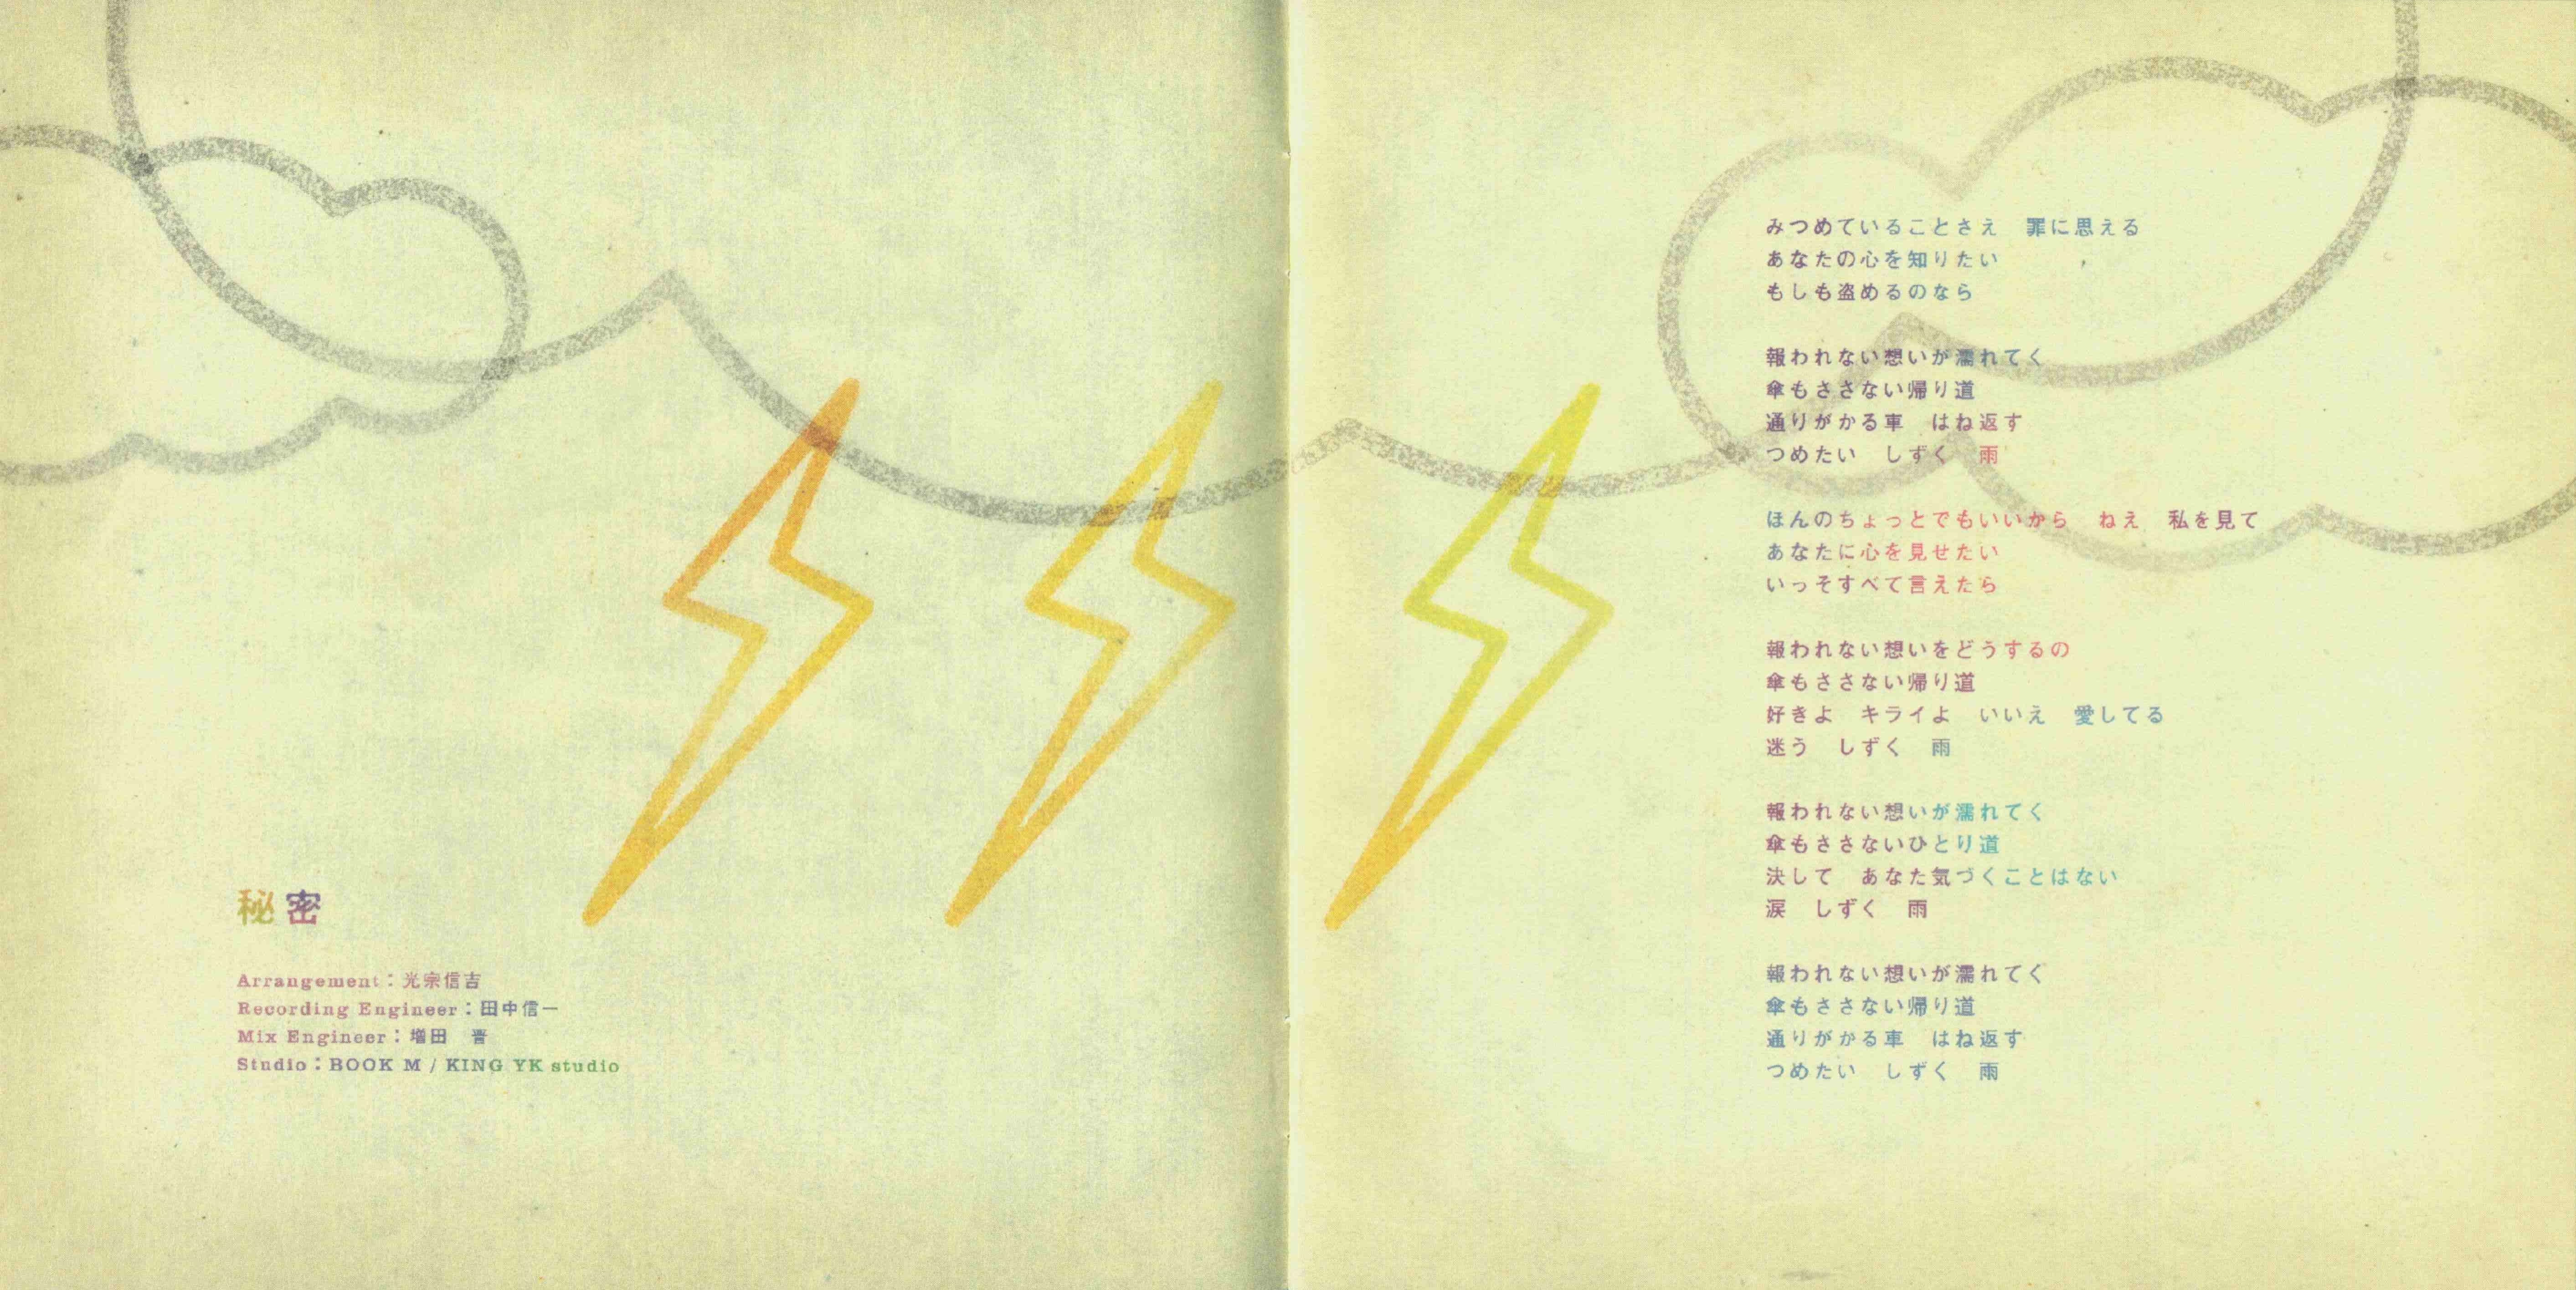 秘密
Arrangement：光宗信吉
Recording Engineer：田中信一
Mix Engineer：増田　晋
Studio：BOOK M / KING YK studio
みつめていることさえ　罪に思える
あなたの心を知りたい
もしも盗めるのなら
報われない想いが濡れてく
傘もささない帰り道
通りがかる車　はね返す
つめたい　しずく　雨
ほんのちょっとでもいいから　ねえ　私を見て
あなたに心を見せたい
いっそすべて言えたら
報われない想いをどうするの
傘もささない帰り道
好きよ　キライよ　いいえ　愛してる
迷う　しずく　雨
報われない想いが濡れてく
傘もささないひとり道
決して　あなた気づくことはない
涙　しずく　雨
報われない想いが濡れてく
傘もささない帰り道
通りがかる車　はね返す
つめたい　しずく　雨